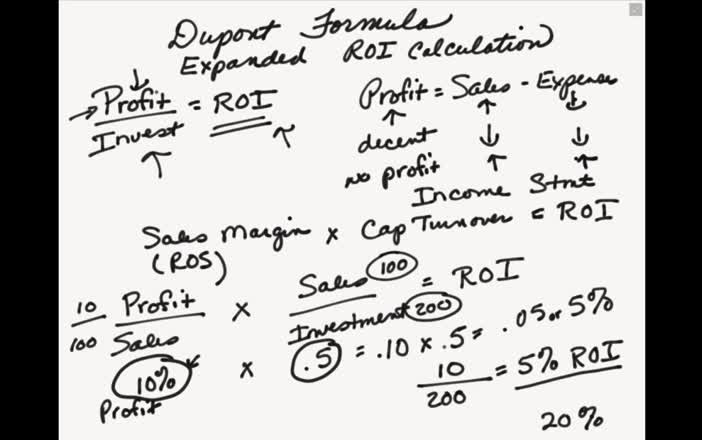 Dupont Formula
Expanded ROI Calculation
Profit = ROI
Invest
Profit = Sales - Expenses
decent
No profit
Income Stmt
Sales Margin x Cap Turnover = ROI
(ROS)
10 Profit x Sales 100 = ROI
100 Sales Investment 200
10% x .5 = .10 x .5 = .05 or 5%
Profit
10 = 5% ROI
200
20%